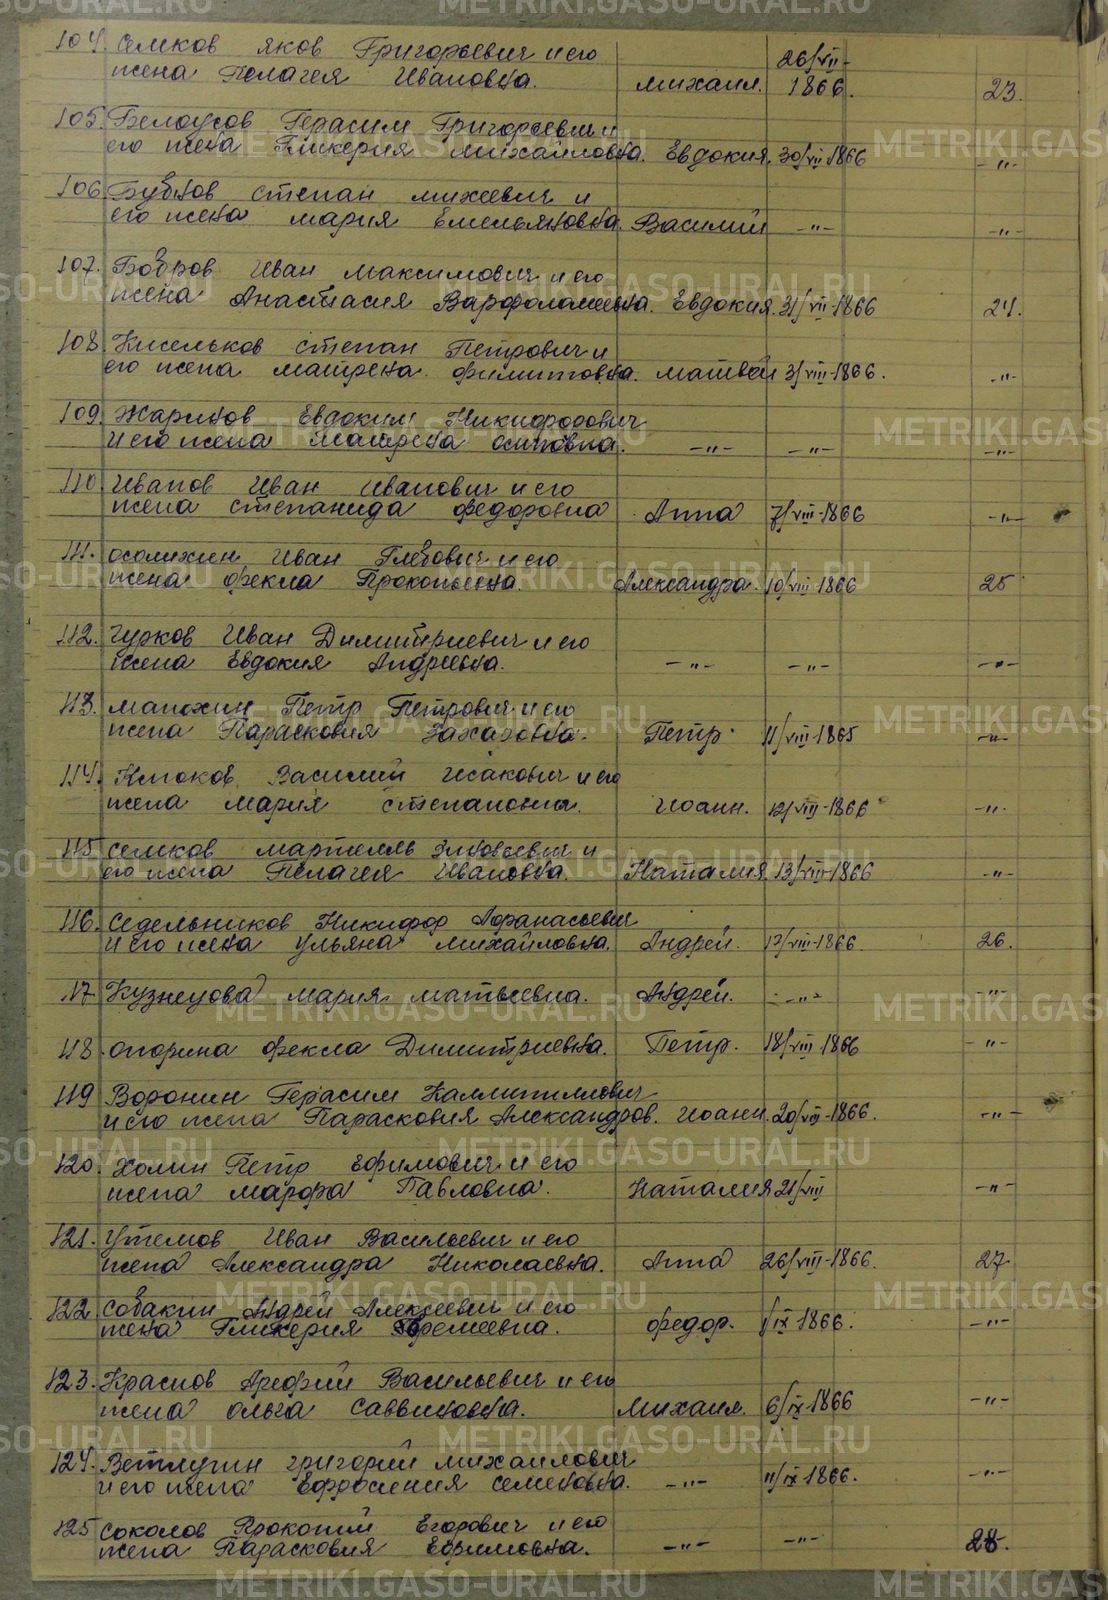 104. Семков Яков Григорьевич и его
жена Пелагея Ивановна. Михаил. 26/VII-1866. 23.
105. Белоусов Герасим Григорьевич и
его жена Гликерия Михайловна. Евдокия. 30/VII-1866 -"-
106. Бубнов Степан Михеевич и
его жена Мария Емельяновна. Василий -"- -"-
107. Бобров Иван Максимович и его
жена Анастасия Варфоломеевна. Евдокия. 31/VII-1866 24.
108. Кисельков Степан Петрович и
его жена Матрена Филиповна. Матвей 3/VIII-1866. -"-
109. Жариков Евдоким Никифорович
и его жена Матрена Осиповна. -"- -"- -"-
110. Иванов Иван Иванович и его
жена Степанида Федоровна Анна 7/VIII-1866 -"-
111. Осолихин Иван Глебович и его
жена Фекла Прокопьевна. Александра. 10/VIII-1866 25
112. Чурков Иван Димитриевич и его
жена Евдокия Андреевна. -"- -"- -"-
113. Манохин Петр Петрович и его
жена Парасковия Захаровна. Петр. 11/VIII-1865 -"-
114. Василий Исакович и его
жена Мария Степановна. Иоанн. 12/VIII-1866 -"-
115. Семков и
его жена Пелагея Ивановна. Наталия. 13/VIII-1866 -"-
116. Седельников Никифор Афанасьевич
и его жена Ульяна Михайловна. Андрей. 17/VIII-1866. 26.
117 Кузнецова Мария Матвеевна. Андрей. -"- -"-
118. Опорина Фекла Димитриевна. Петр. 18/VIII-1866 -"-
119 Воронин Герасим
и его жена Парасковия Александров. Иоанн. 20/VII-1866. -"-
120. Холин Петр Ефимович и его
жена Марфа Павловна. Наталия 21/VIII -"-
121. Утемов Иван Васильевич и его
жена Александра Николаевна. Анна 26/VIII-1866. 27.
122 Собакин Андрей Алексеевич и его
жена Гликерия Еремеевна. Федор. 1/IX 1866. -"-
123. Краснов Арефий Васильевич и его
жена Ольга Саввиновна. Михаил. 6/IX-1866 -"-
124. Ветлугин Григорий Михайлович
и его жена Ефросиния Семеновна. -"- 11/IX 1866. -"-
125 Соколов Прокопий Егорович и его
жена Парасковия Ефимовна. -"- -"- 28.
METRIKI.GASO-URAL.RU